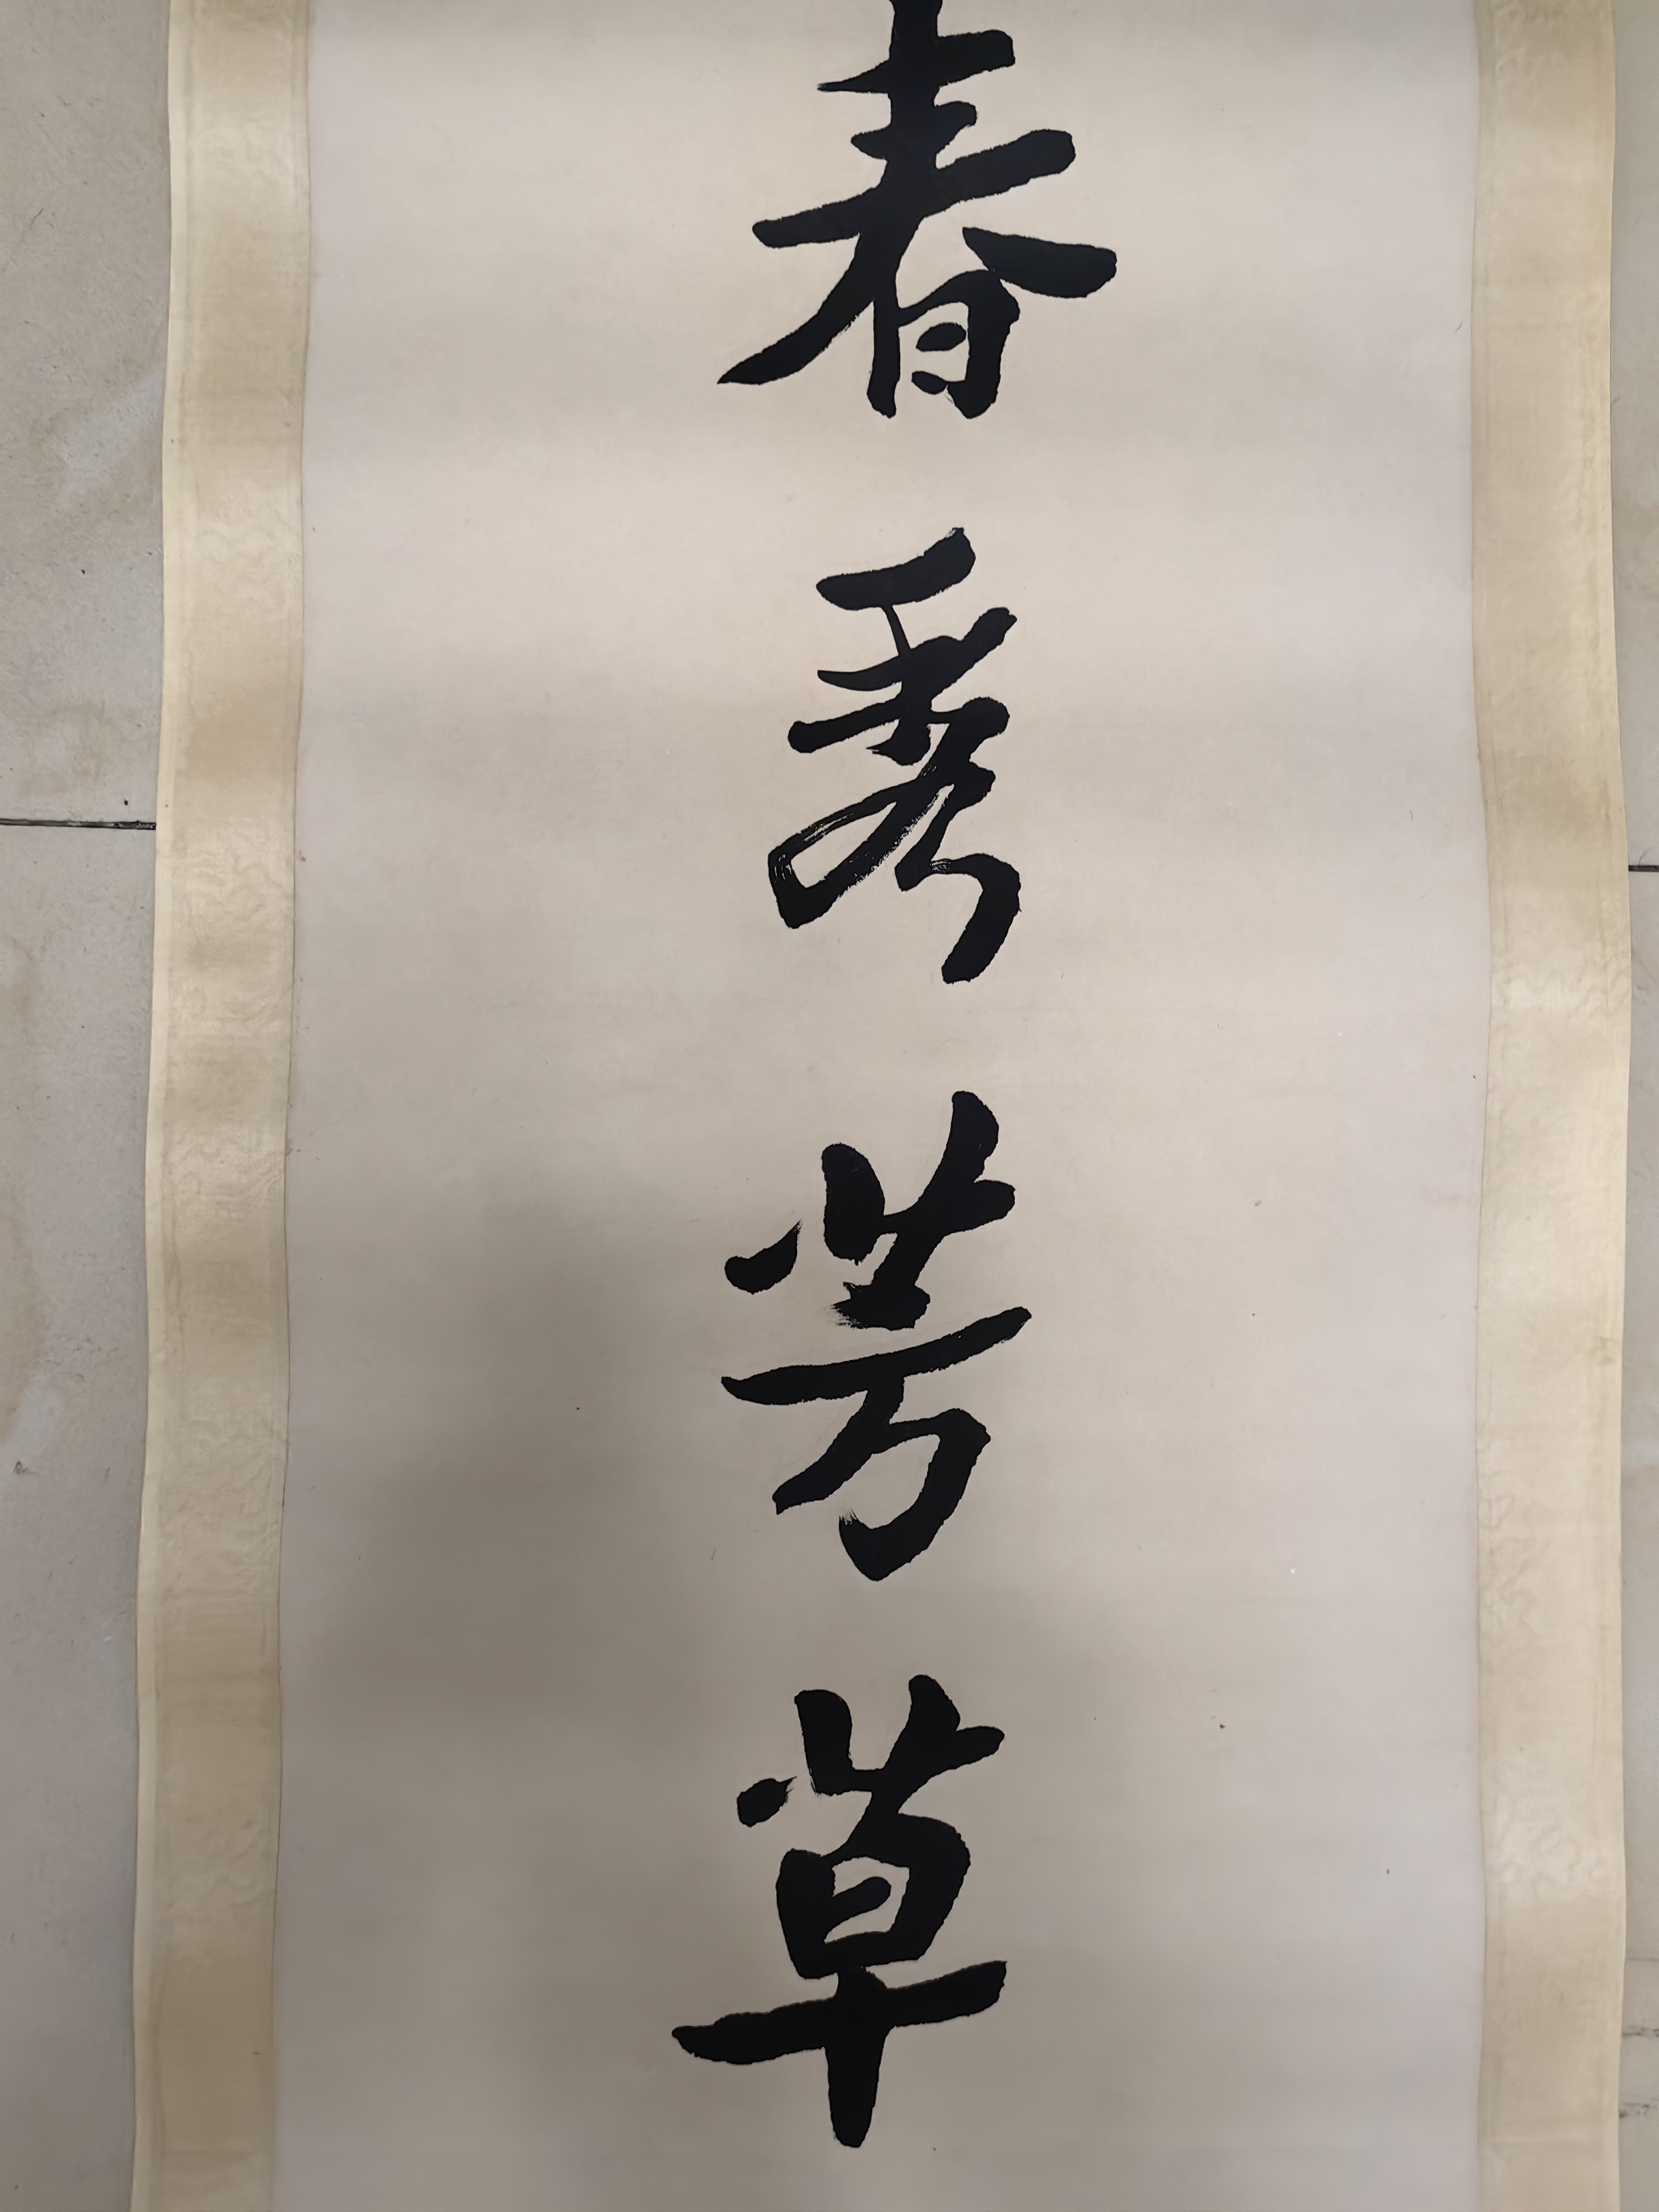 春秀芳草